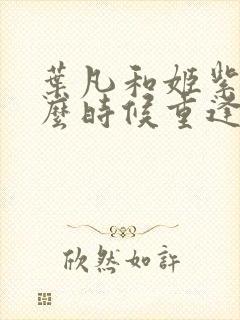 葉凡和姬紫
麼時候重逢
欣然如許